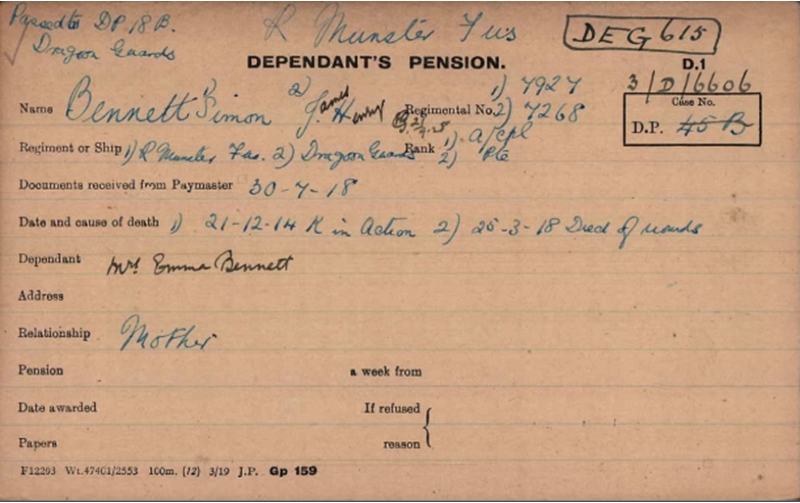 Passed to DP. 18 B.
Dragoon Guards
R Munster Fus
DEG 615
DEPENDANT'S PENSION.
D.1
3/D/6606
Name Bennett 1) Simon 2) J. James Henry
Regimental No. 1) 7927 2) 7268
Case No.
D.P. 45 B
Regiment or Ship 1) R Munster Fus. 2) Dragoon Guards Rank 1). a/Cpl 2) Pte
Documents received from Paymaster 30-7-18
Date and cause of death 1) 21-12-14 K in Action 2) 25-3-18 Died of wounds
Dependant Mrs Emma Bennett
Address
Relationship Mother
Pension a week from
Date awarded If refused
Papers reason
F12293 Wt.47401/2553 100m. (12) 3/19 J.P. Gp 159